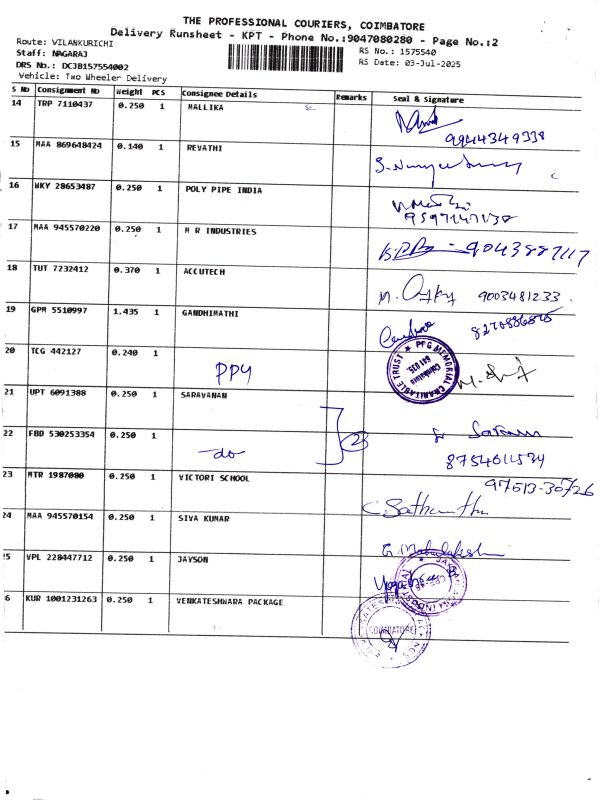 THE PROFESSIONAL COURIERS, COIMBATORE
Delivery Runsheet - KPT - Phone No.:9047080280 - Page No.:2
Route: VILANKURICHI
Staff: NAGARAJ RS No.: 1575540
DRS No.: DCJB157554002 RS Date: 03-Jul-2025
Vehicle: Two Wheeler Delivery
S No Consignment No Weight PCS Consignee Details Remarks Seal & Signature
14 TRP 7110437 0.250 1 MALLIKA
9944349338
15 MAA 869648424 0.140 1 REVATHI
16 WKY 28653487 0.250 1 POLY PIPE INDIA
9597147138
17 MAA 945570220 0.250 1 M R INDUSTRIES
9043887117
18 TUT 7232412 0.370 1 ACCUTECH
9003481233
19 GPM 5510997 1.435 1 GANDHIMATHI
20 TCG 442127 0.240 1
PPG MEMORIAL CHARITABLE TRUST
Coimbatore
641 035.
21 UPT 6091388 0.250 1 SARAVANAN
22 FBD 530253354 0.250 1
-do-
2
23 MTR 1987080 0.250 1 VICTORI SCHOOL
97513-30726
C. Sathu
24 MAA 945570154 0.250 1 SIVA KUMAR
25 VPL 228447712 0.250 1 JAYSON
6 KUR 1001231263 0.250 1 VENKATESHWARA PACKAGE
COIMBATORE